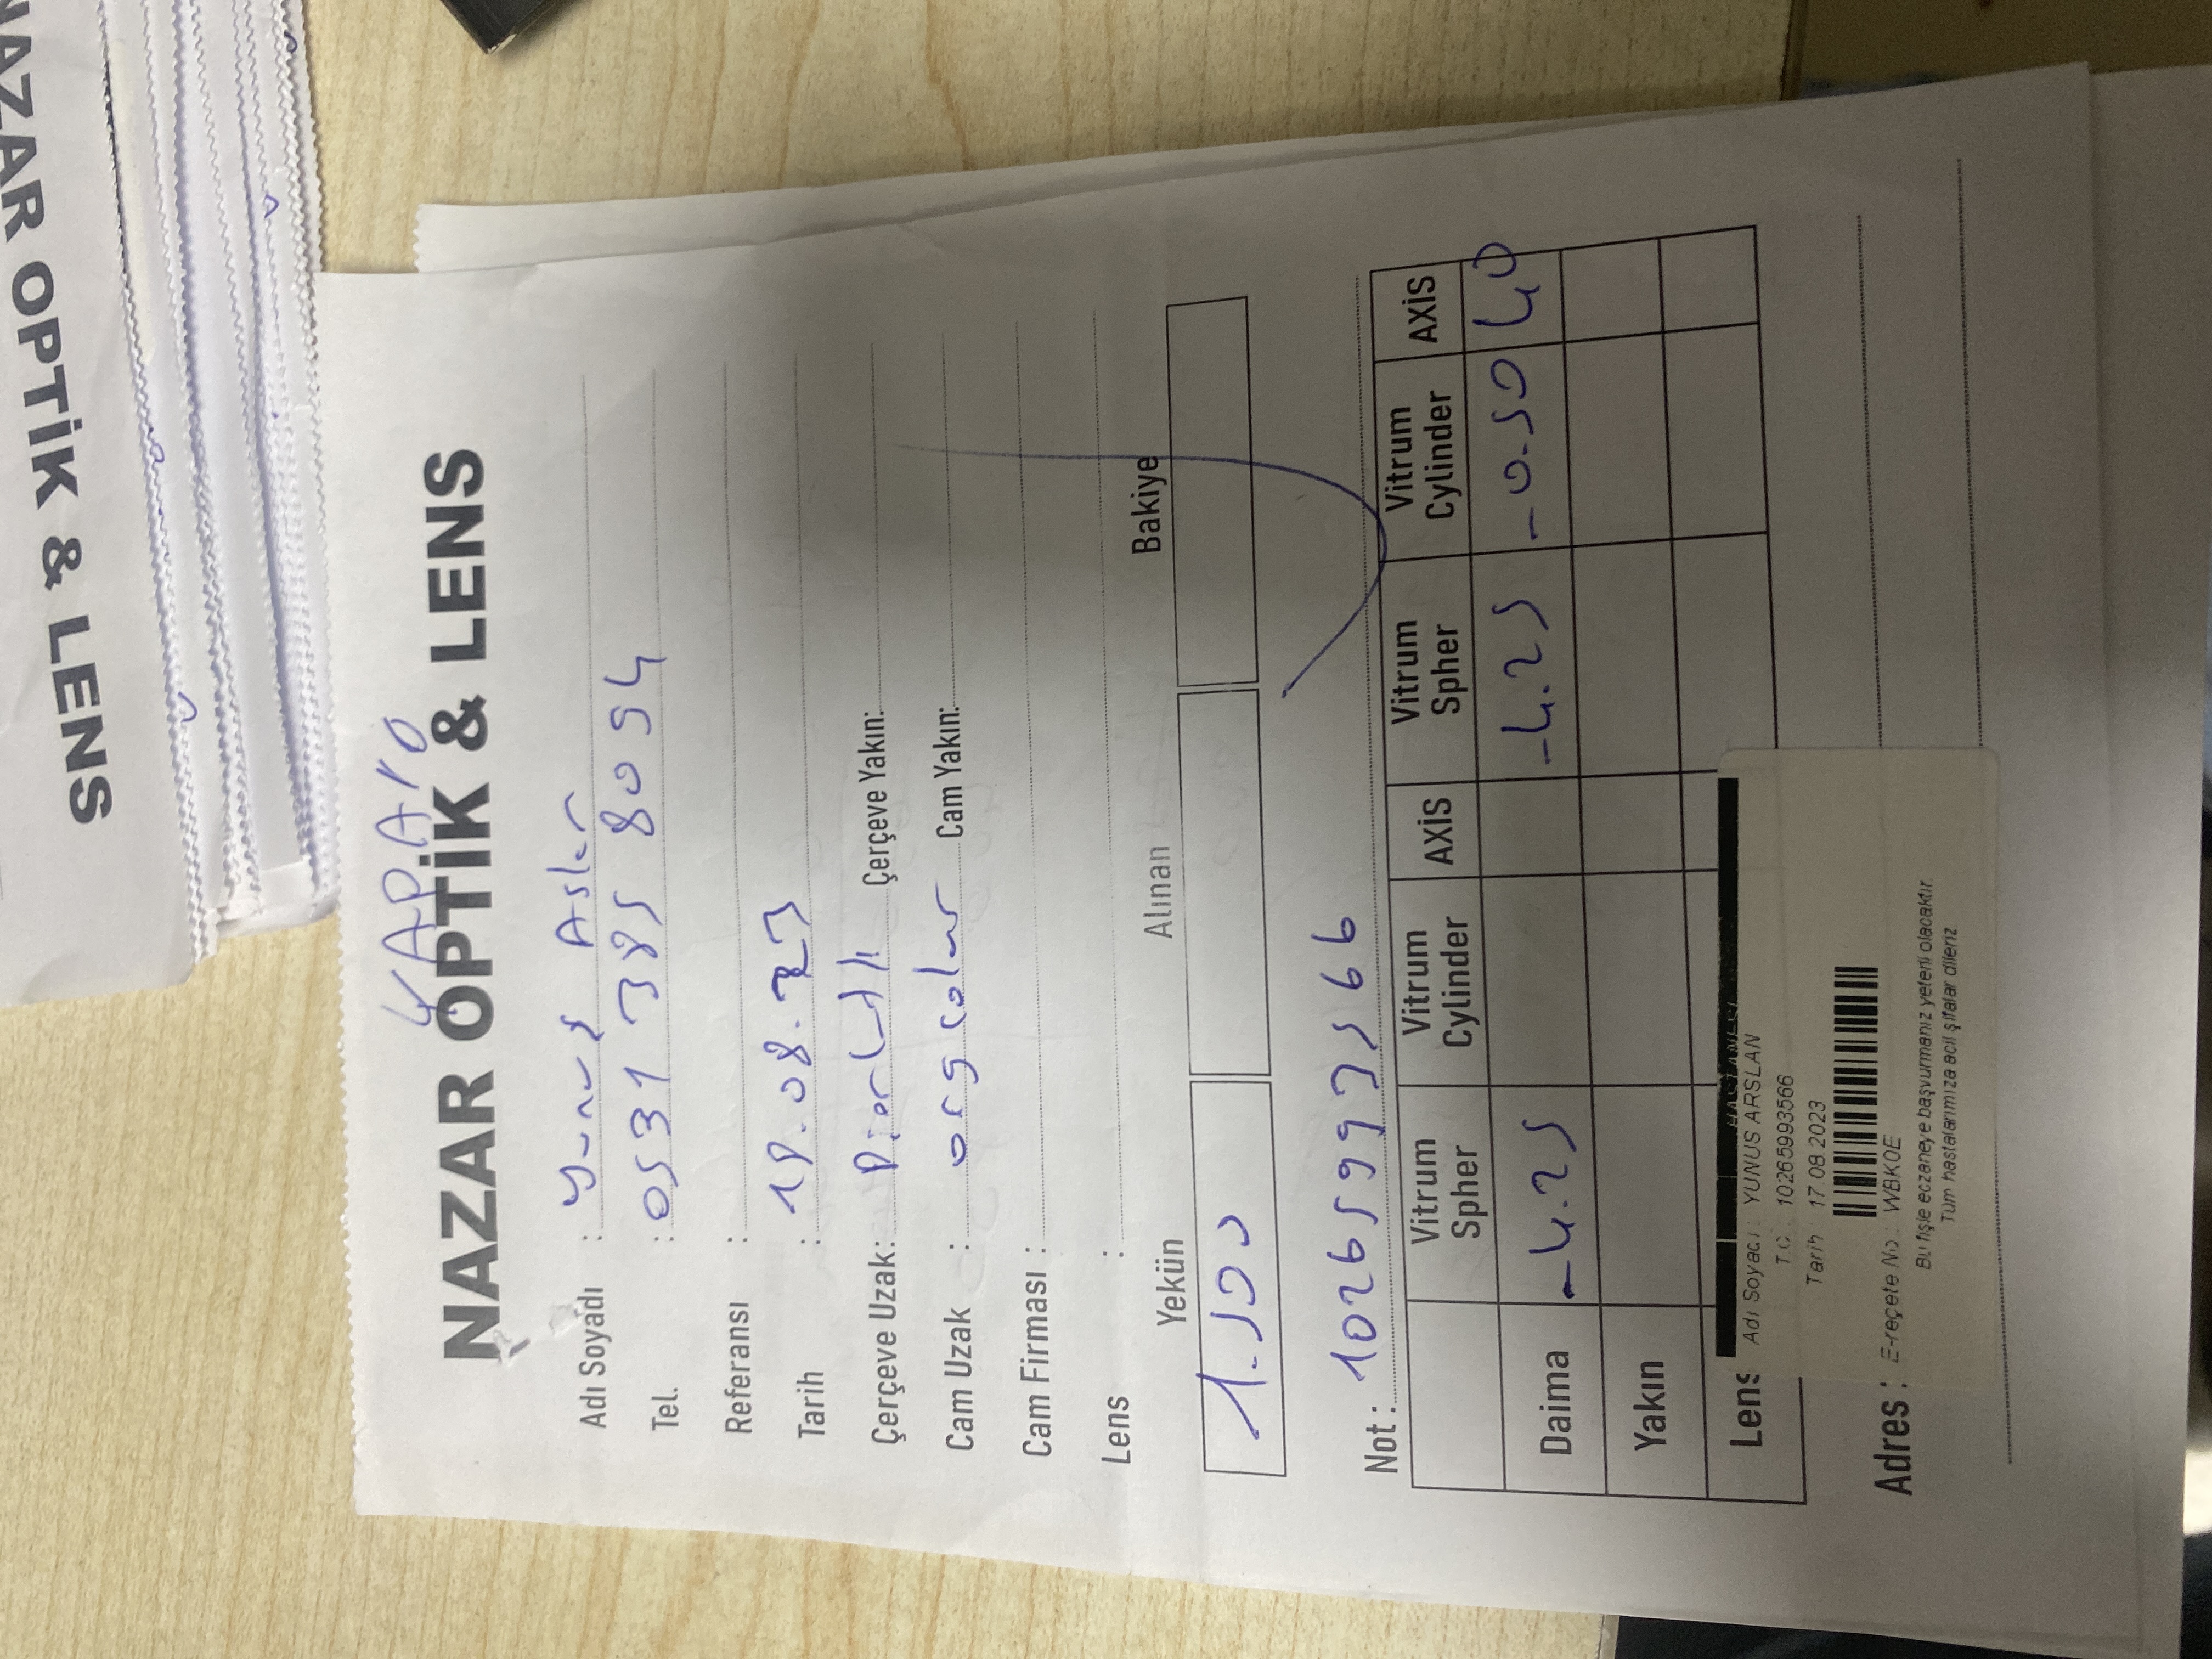 NAZAR OPTİK & LENS
YAPAYO
NAZAR OPTİK & LENS
Adı Soyadı : Yunus Aslan
Tel. : 0531 385 8094
Referansı :
Tarih : 18.08.23
Çerçeve Uzak: Çerçeve Yakın:
Cam Uzak : org colour Cam Yakın:
Cam Firması :
Lens :
Yekün Alınan Bakiye
1.500
Not : 10265993566
Vitrum Spher Vitrum Cylinder AXİS Vitrum Spher Vitrum Cylinder AXİS
Daima -4.25 -4.25 -0.50 40
Yakın
Lens
HASTANESİ
Adı Soyadı : YUNUS ARSLAN
T.C. : 10265993566
Tarih : 17.08.2023
Adres :
E-reçete No : WBK0E
Bu fişle eczaneye başvurmanız yeterli olacaktır.
Tüm hastalarımıza acil şifalar dileriz.